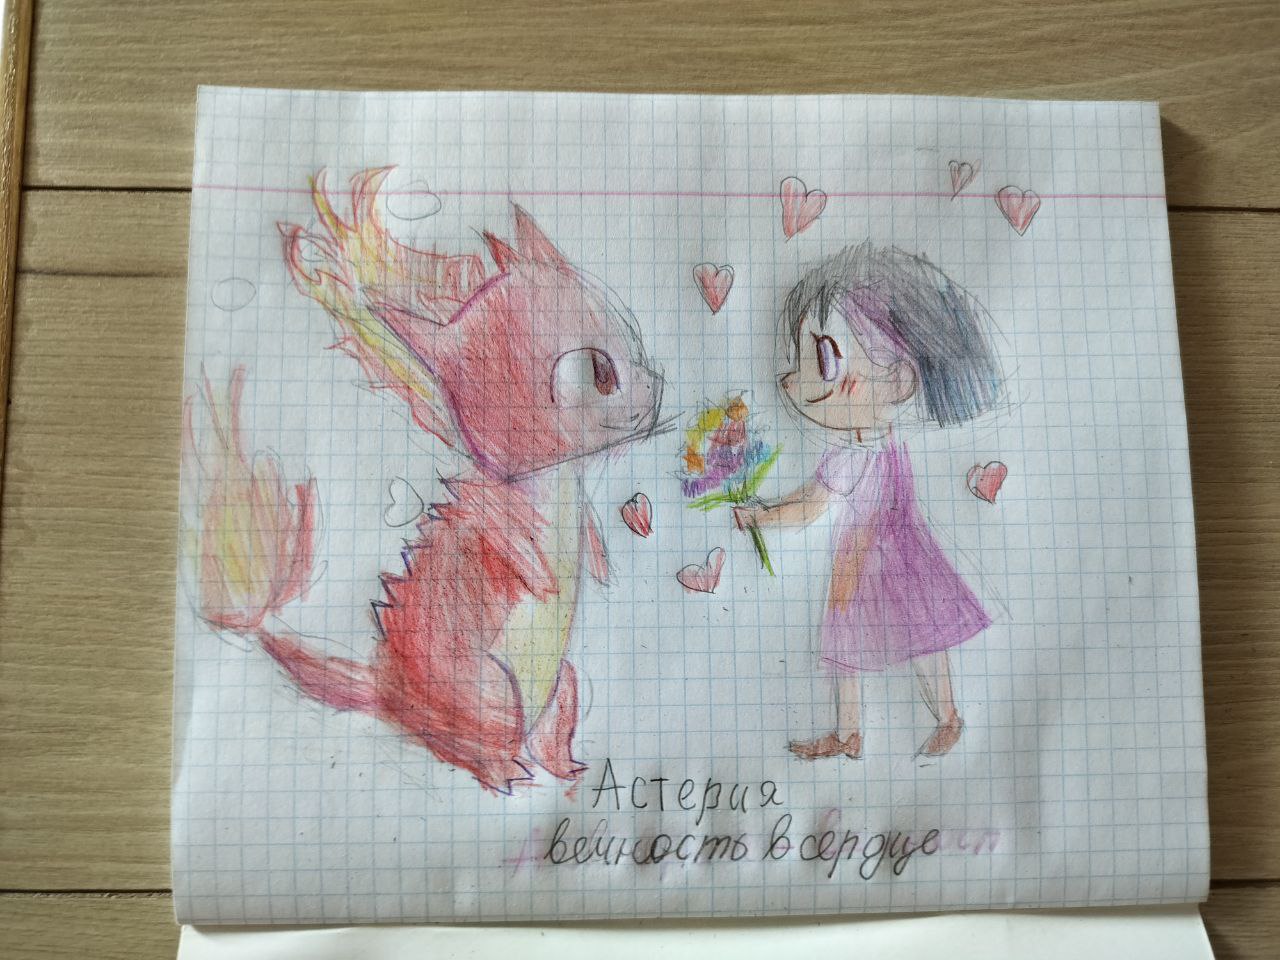 Астерия
вечность в сердце